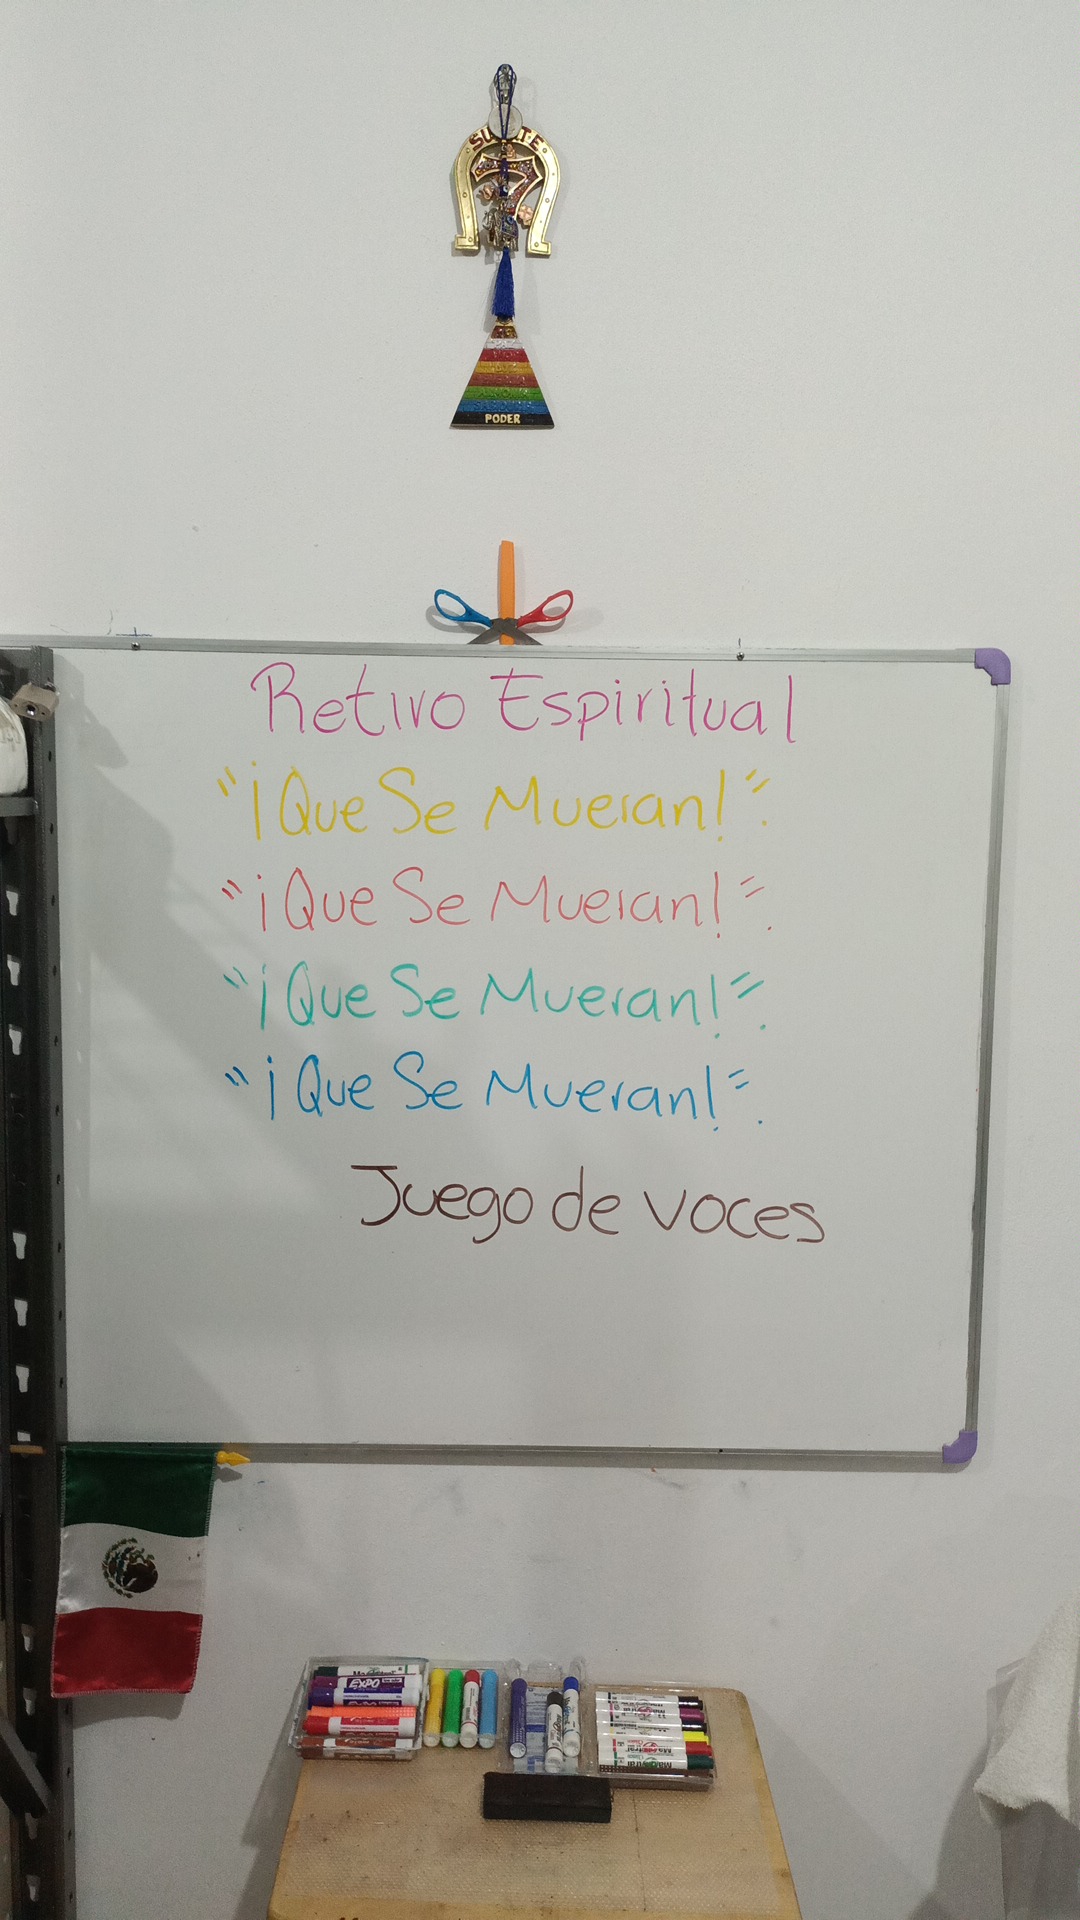 SUERTE
7
PODER
Retiro Espiritual
"¡Que Se Mueran!".
"¡Que Se Mueran!".
"¡Que Se Mueran!".
"¡Que Se Mueran!".
Juego de voces
EXPO
Magistral
Magistral